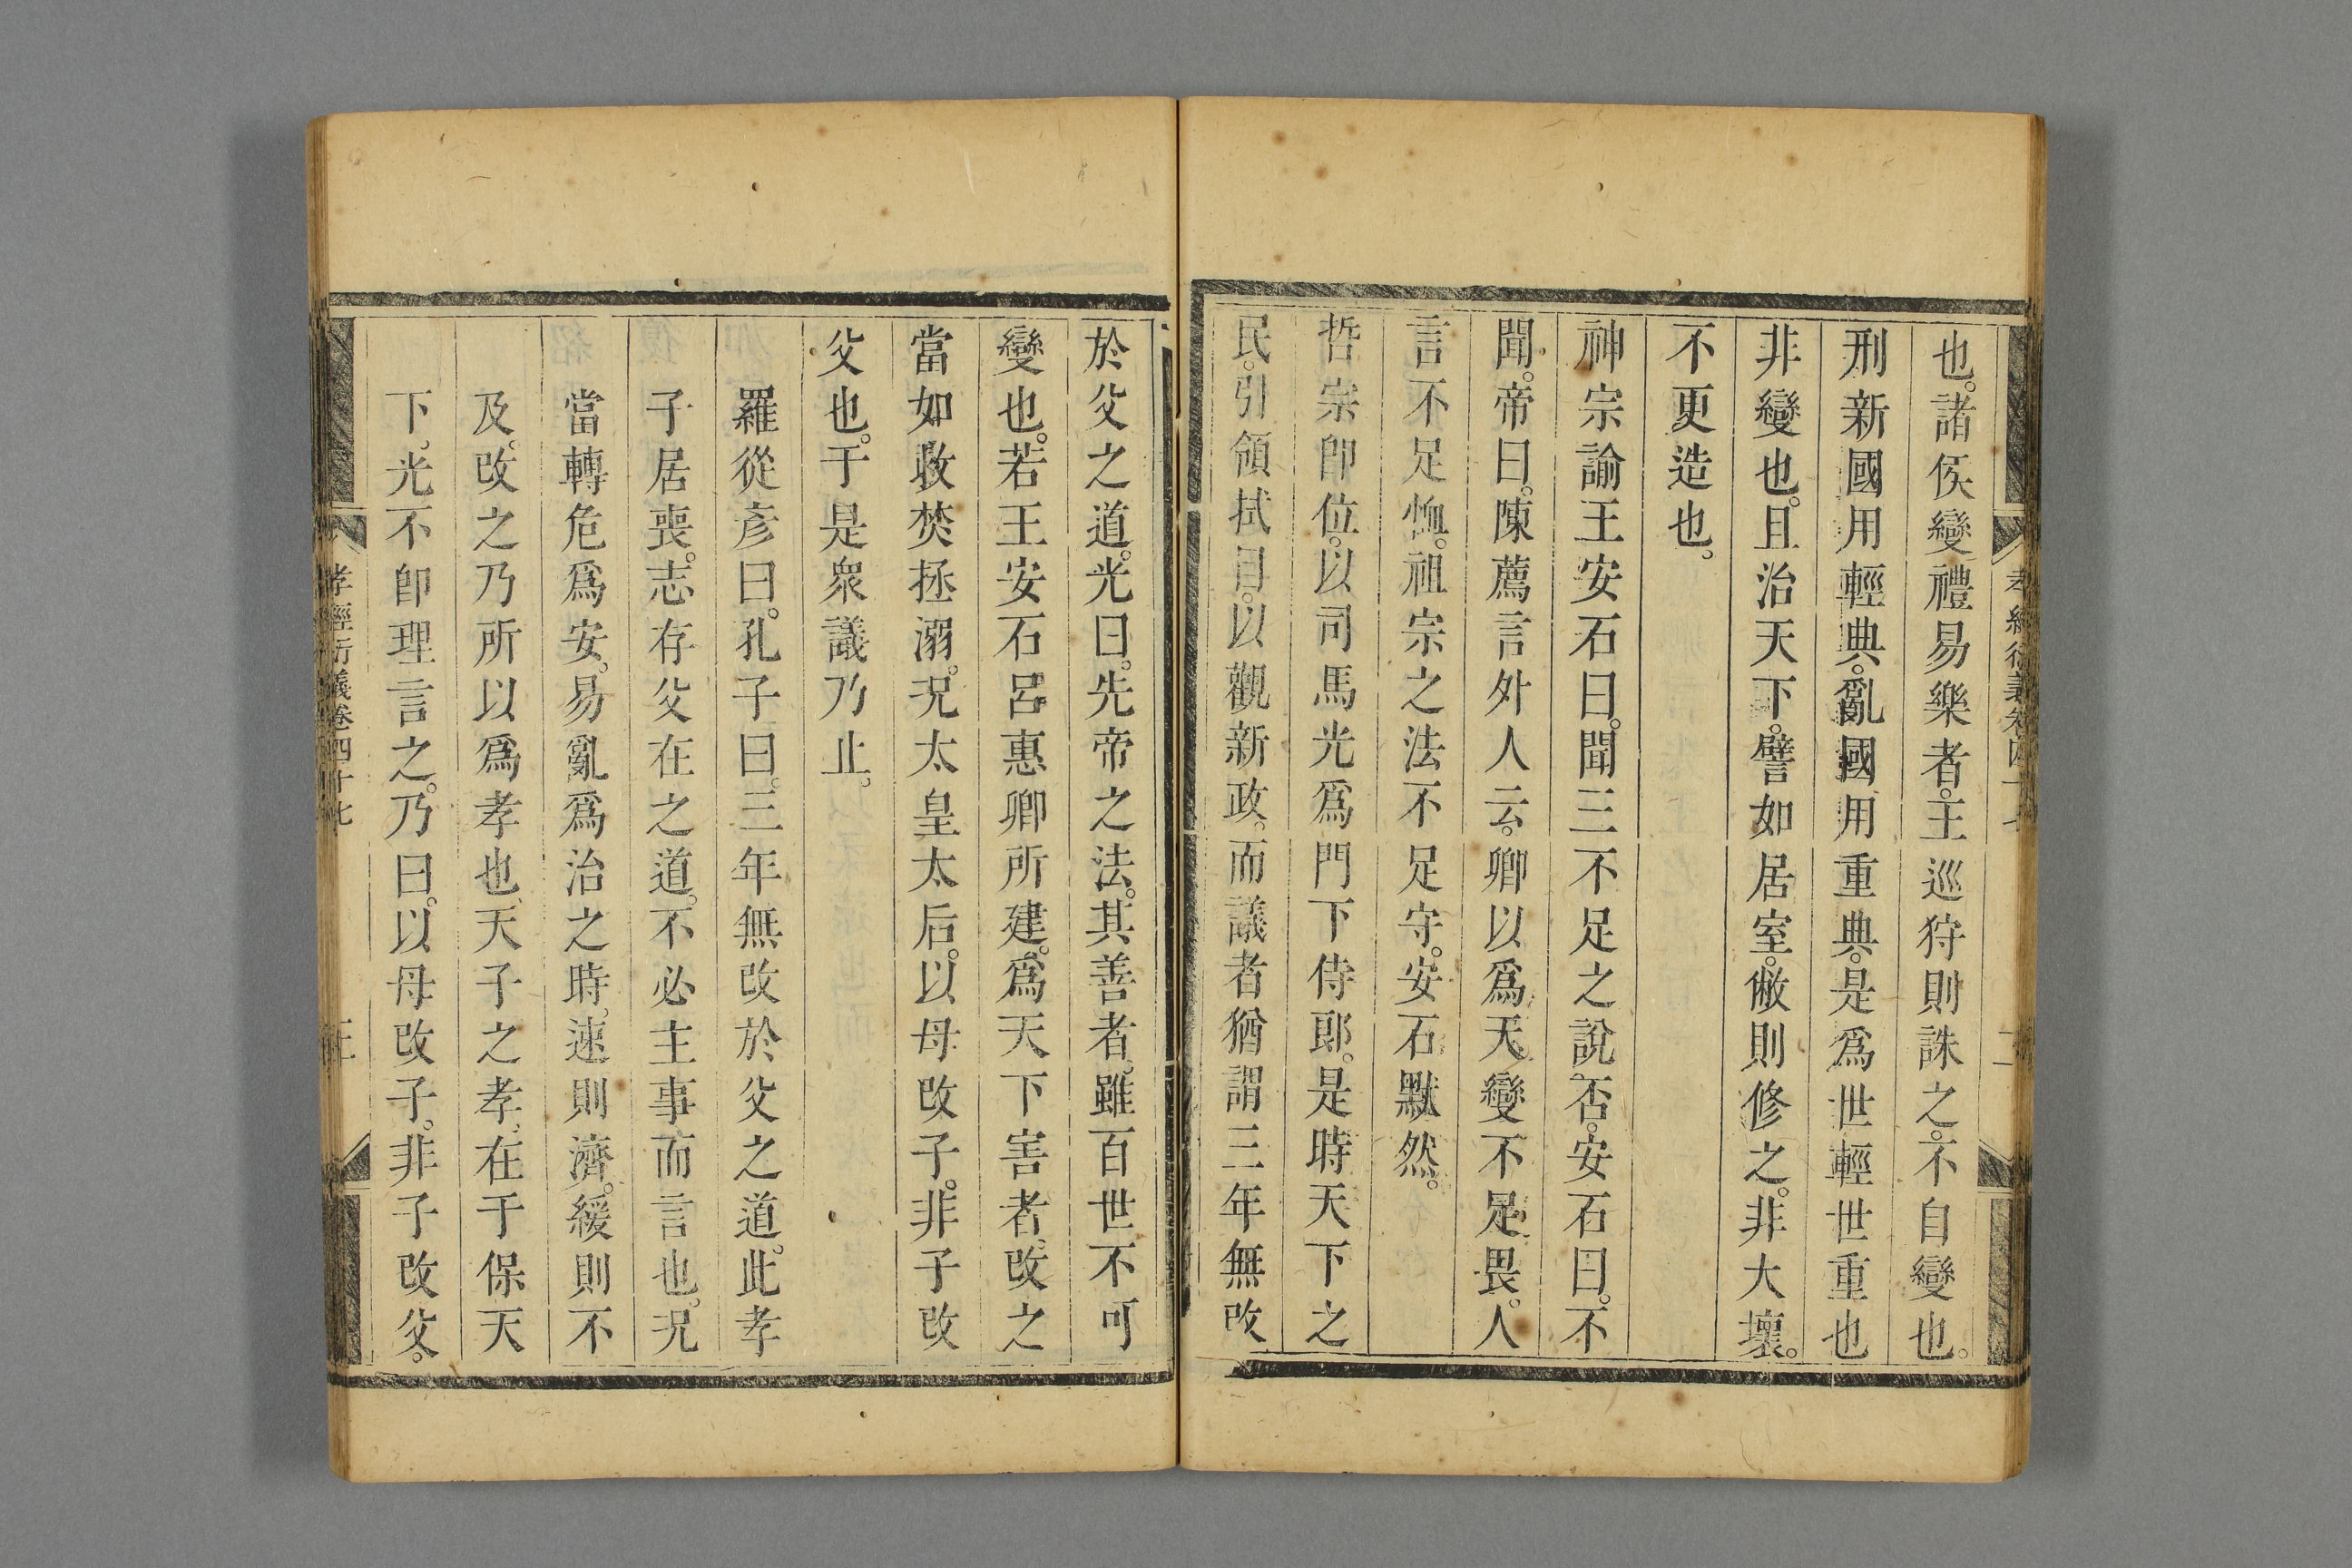 也。諸侯變禮易樂者。王巡狩則誅之。不自變也。
刑新國用輕典。亂國用重典。是爲世輕世重也
非變也。且治天下。譬如居室。敝則修之。非大壞。
不更造也。
神宗諭王安石曰。聞三不足之說否。安石曰。不
聞。帝曰。陳薦言外人云。卿以爲天變不足畏。人
言不足恤。祖宗之法不足守。安石默然。
哲宗卽位。以司馬光爲門下侍郎。是時天下之
民。引領拭目。以觀新政。而議者猶謂三年無改
於父之道。光曰。先帝之法。其善者。雖百世不可
變也。若王安石呂惠卿所建。爲天下害者。改之
當如救焚拯溺。况太皇太后。以母改子。非子改
父也。于是衆議乃止。
羅從彥曰。孔子曰。三年無改於父之道。此孝
子居喪。志存父在之道。不必主事而言也。况
當轉危爲安。易亂爲治之時。速則濟。緩則不
及。改之乃所以爲孝也。天子之孝。在于保天
下。光不卽理言之。乃曰。以母改子。非子改父。
孝經衍義卷四十七